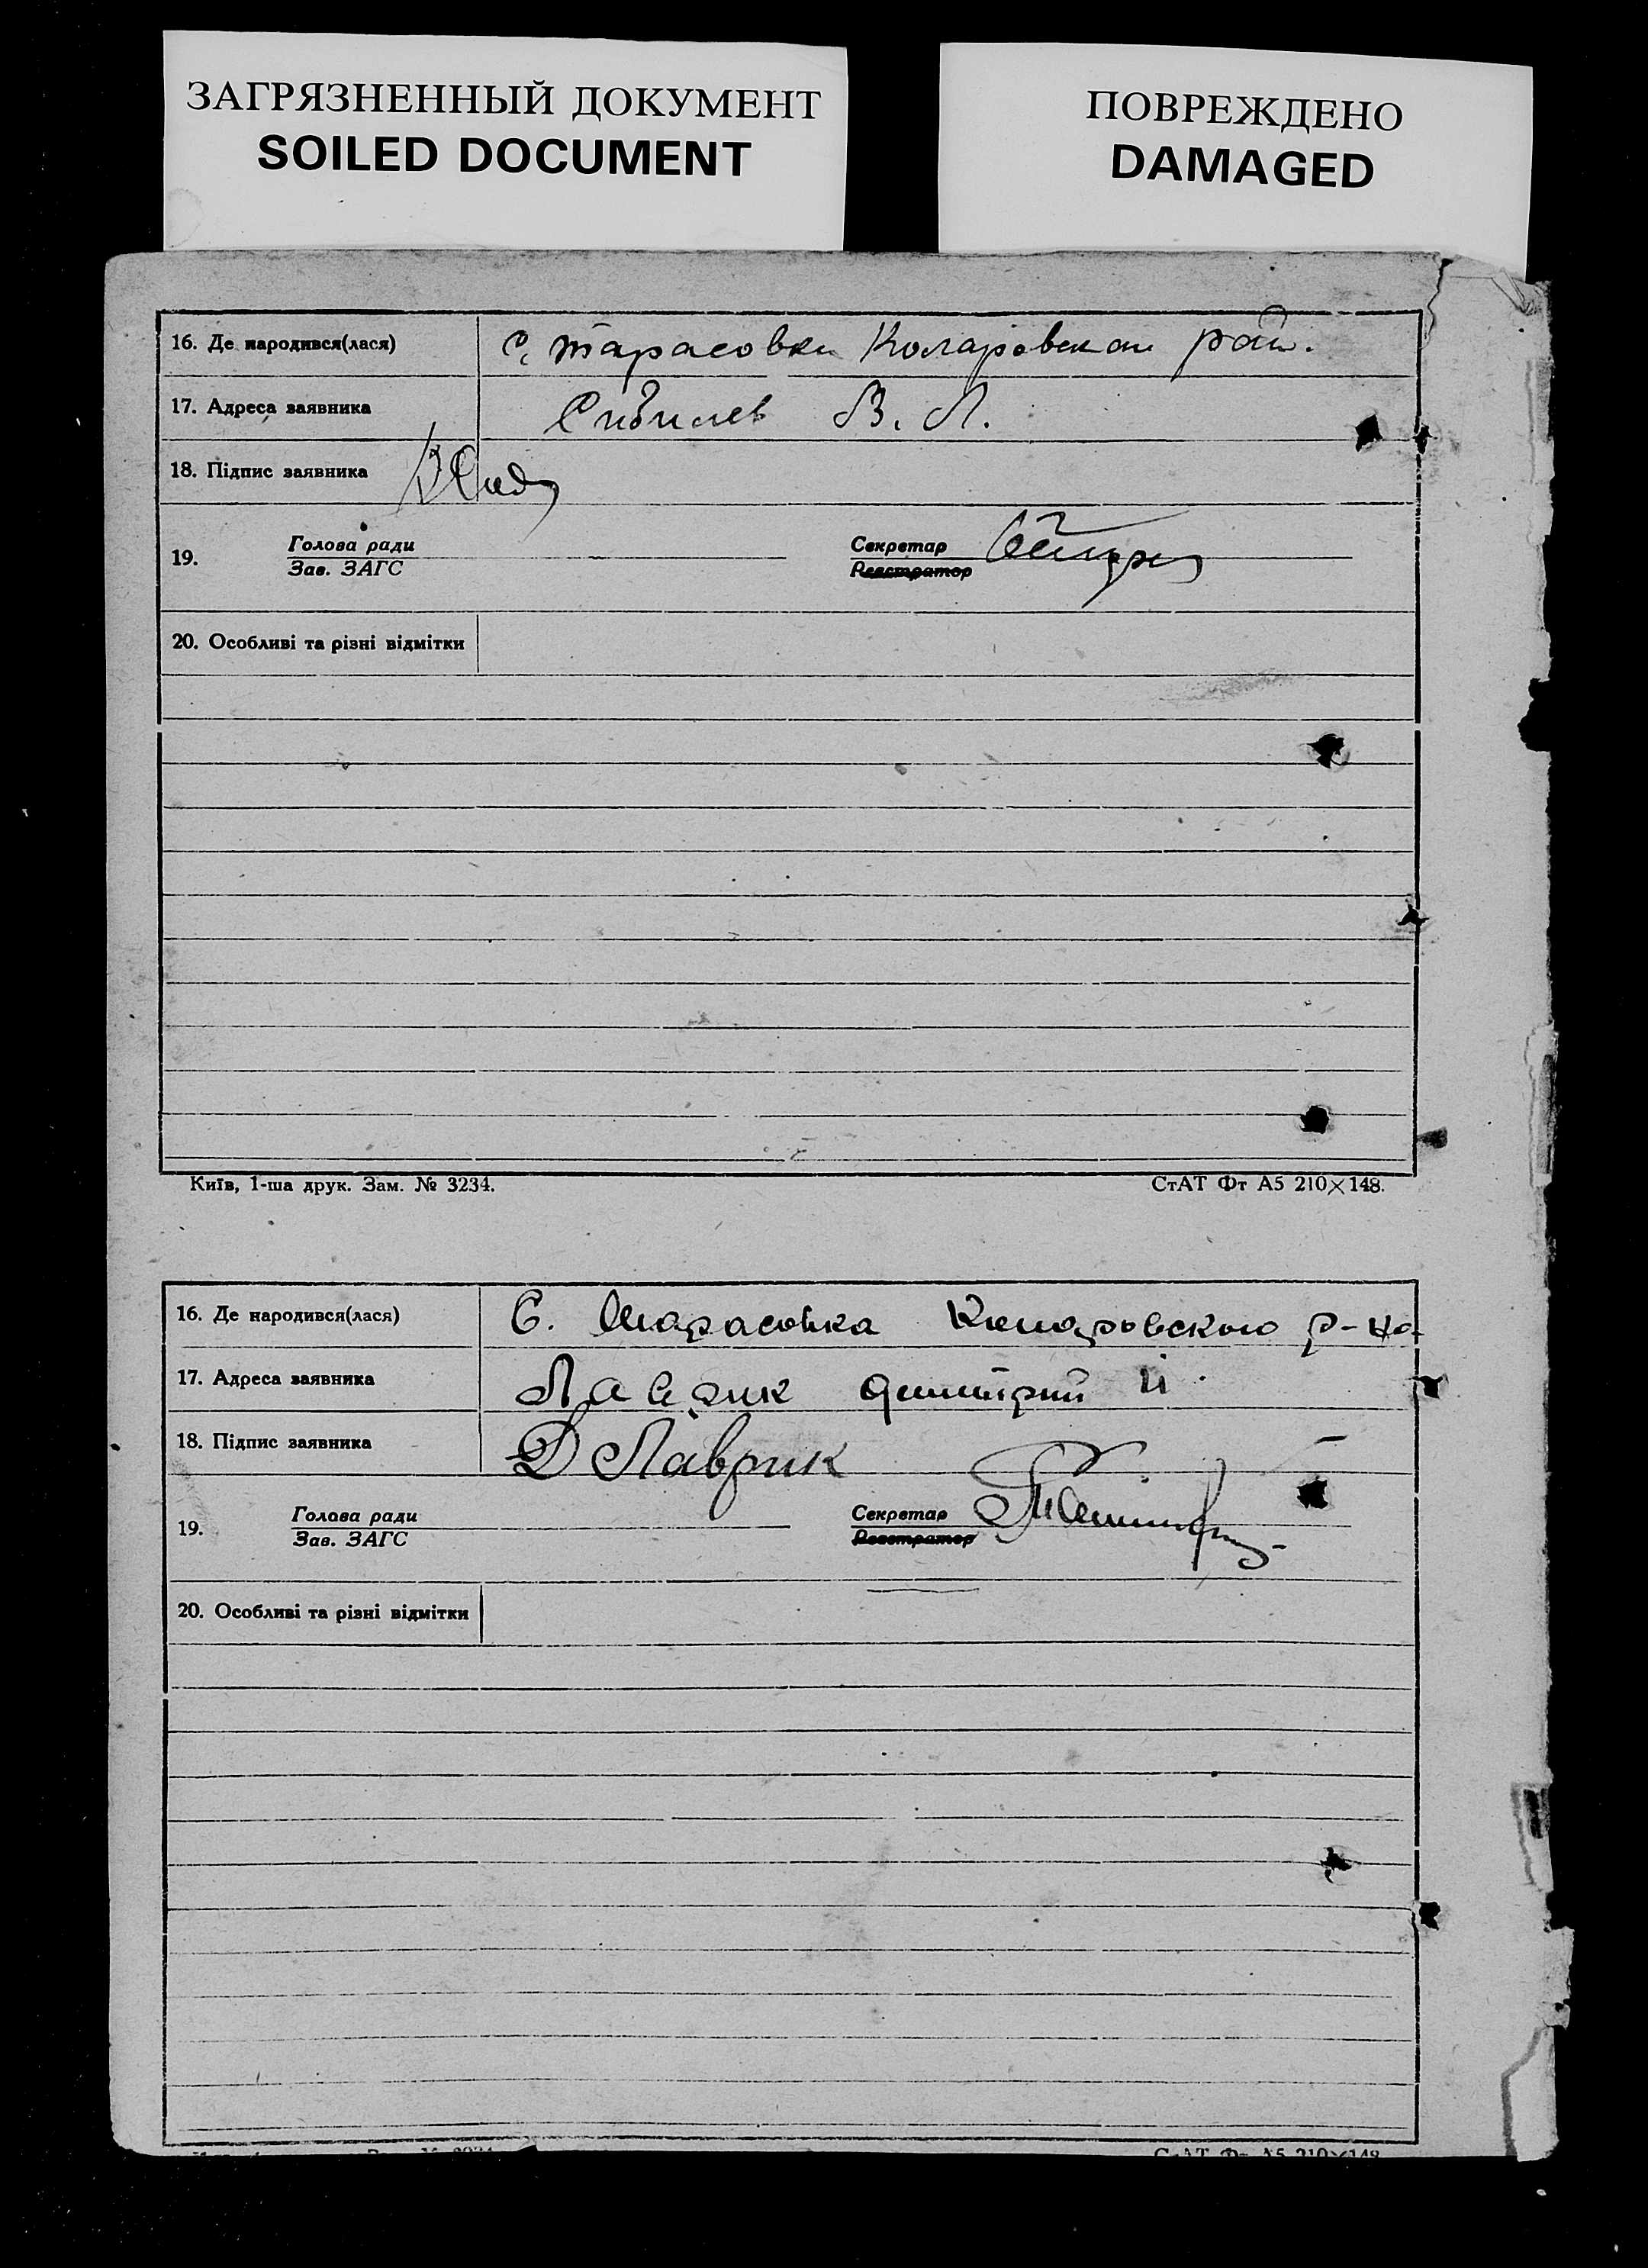 ЗАГРЯЗНЕННЫЙ ДОКУМЕНТ
SOILED DOCUMENT
ПОВРЕЖДЕНО
DAMAGED
16. Де народився(лася) С. Тарасовки Коларовскай рай.
17. Адреса заявника Сибилев В. Л.
18. Підпис заявника
19. Голова ради Секретар
Зав. ЗАГС Реєстратор
20. Особливі та різні відмітки
Київ, 1-ша друк. Зам. № 3234. СтАТ Фт А5 210×148.
16. Де народився(лася) С. Тарасовка р-на
17. Адреса заявника Лаврик Дмитрий И.
18. Підпис заявника Д Лаврик
19. Голова ради Секретар
Зав. ЗАГС Реєстратор
20. Особливі та різні відмітки
СтАТ Фт А5 210×148